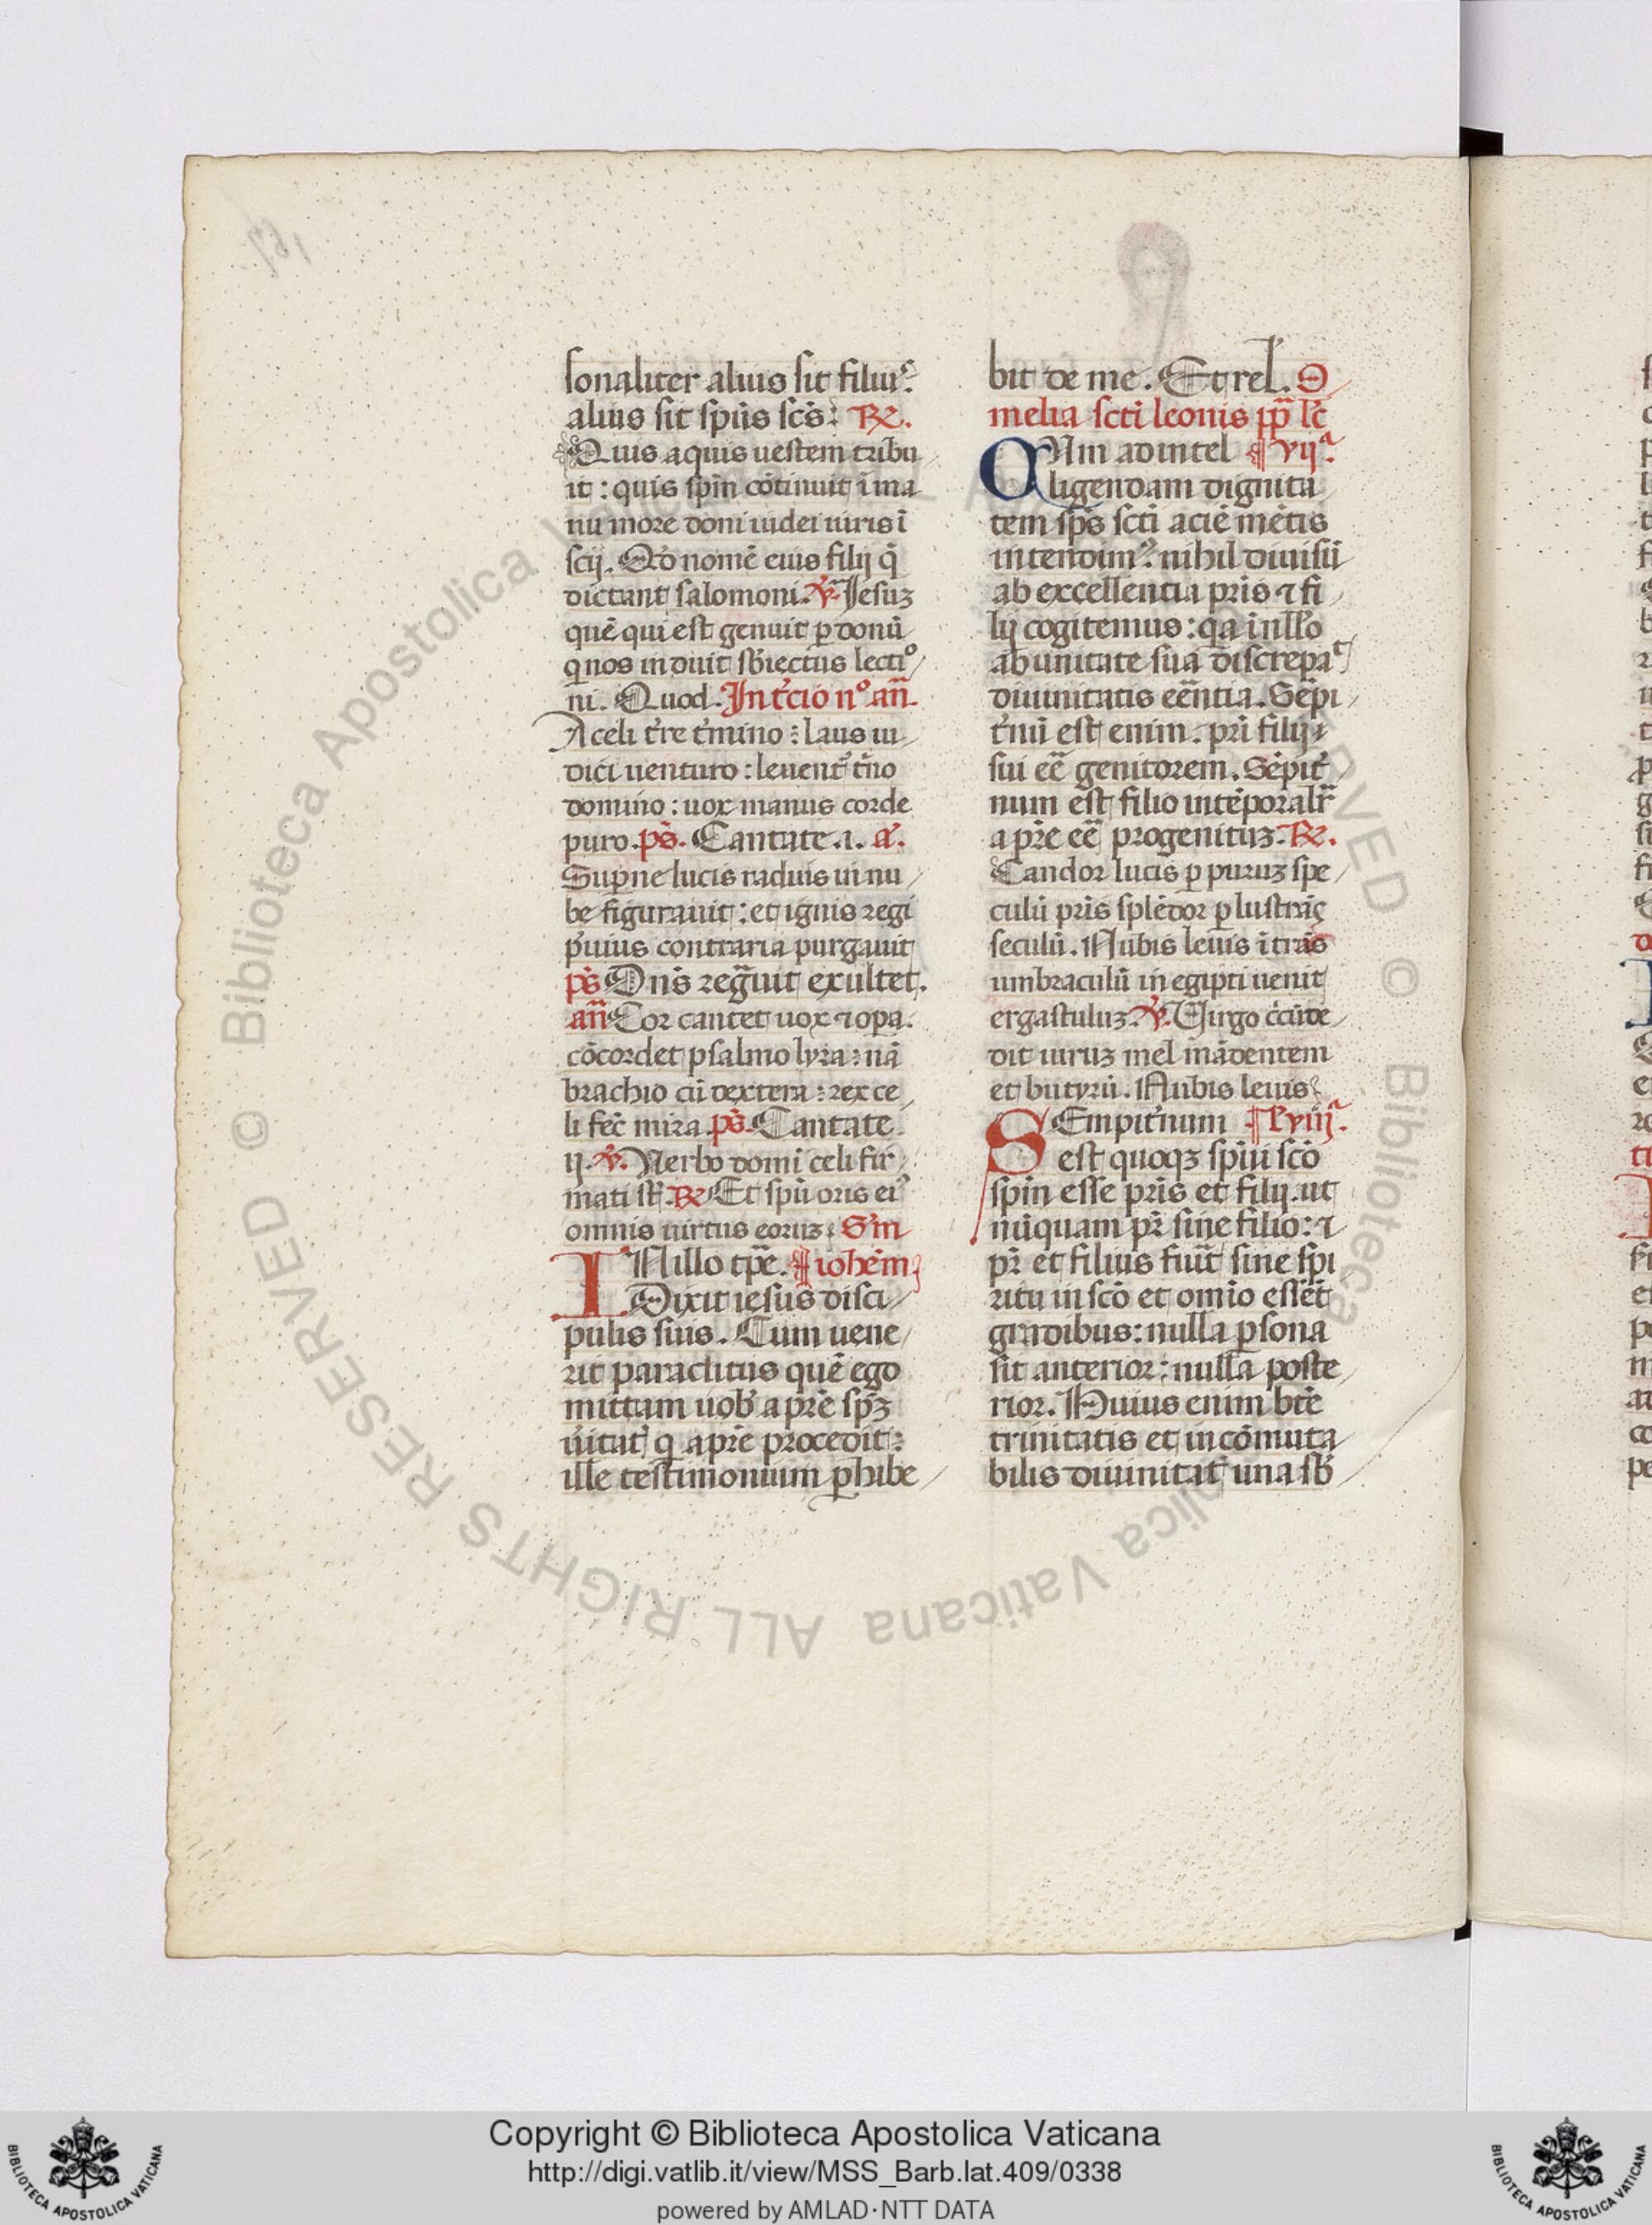 sonaliter alius sit filius
alius sit sp̄us sc̄s: R̄.
Quis aquis uestem tribu
it : quis sp̄m cōtinuit ī ma
nu more domī iudei uiris ī
scij. Qd nomē eius filij q̄
dictant salomoni. V̄. Iesuꝫ
quē qui est genuit ꝑ donū
q nos induit sb̄iectus lectiº
ni. Quod. In tc̄io nº an̄.
A celi tr̄e tm̄ino : laus iu
dici uenturo : leuent̄ tn̄o
domino : uox manus corde
puro. ps̄. Cantate .i. a̅.
Superne lucis radius in nu
be figurauit : et ignis regi
pluuius contraria purgauit
ps̄ Dn̄s reg̅uit exultet.
an̄ Cor cantet uox ⁊ opa.
cōcordet psalmo lyra : nā
brachio cū dextera : rex ce
li fec̄ mira. ps̄. Cantate
ij. V̄. Verbo domī celi fir
mati st̄. R̄ Et spū oris ei'
omnis uirtus eoruꝫ. Sm̄
IN illo tp̄e. ¶ iohēm
Dixit iesus disci
pulis suis. Cum uene
rit paraclitus quē ego
mittam uob' a pr̄e sp̄ꝫ
ūitat' q a pr̄e procedit :
ille testimonium ꝑhibe
bit de me. Et rel. O
melia scti leonis pp̄ lc̄
QVm ad intel ¶ vijª.
ligendam dignita
tem sp̄s scti aciē mētis
intendim' : nihil diuisū
ab excellentia pr̄is ⁊ fi
lij cogitemus : qa ī nllo
ab unitate sua discrepat
diuinitatis eēntia. Sēpi
tn̄ū est enim. pr̄i filij ⁊
sui eē genitorem. Sēpit̄
num est filio intēporalr̄
a pr̄e eē progenituꝫ. R̄.
Candor lucis ꝑ puruꝫ spe
culū pr̄is splēdor ꝑlustrās
seculū. Nubis leuis ītrās
umbraculū in egipti uenit
ergastuluꝫ. V̄. Virgo c̄cūde
dit uiruꝫ mel mādentem
et butyrū. Nubis leuis
SEmpit̄num ¶ l'viijª.
est quoqꝫ spiū scō
spm̄ esse pr̄is et filij. ut
nūquam pr̄ sine filio : ⁊
pr̄ et filius fiūt sine spi
ritu in scō et om̄io essēt
gradibus : nulla ꝑsona
sit anterior : nulla poste
rior. Huius enim btē
trinitatis et incōmuta
bilis diuinitat' una sb
Copyright © Biblioteca Apostolica Vaticana
http://digi.vatlib.it/view/MSS_Barb.lat.409/0338
powered by AMLAD·NTT DATA